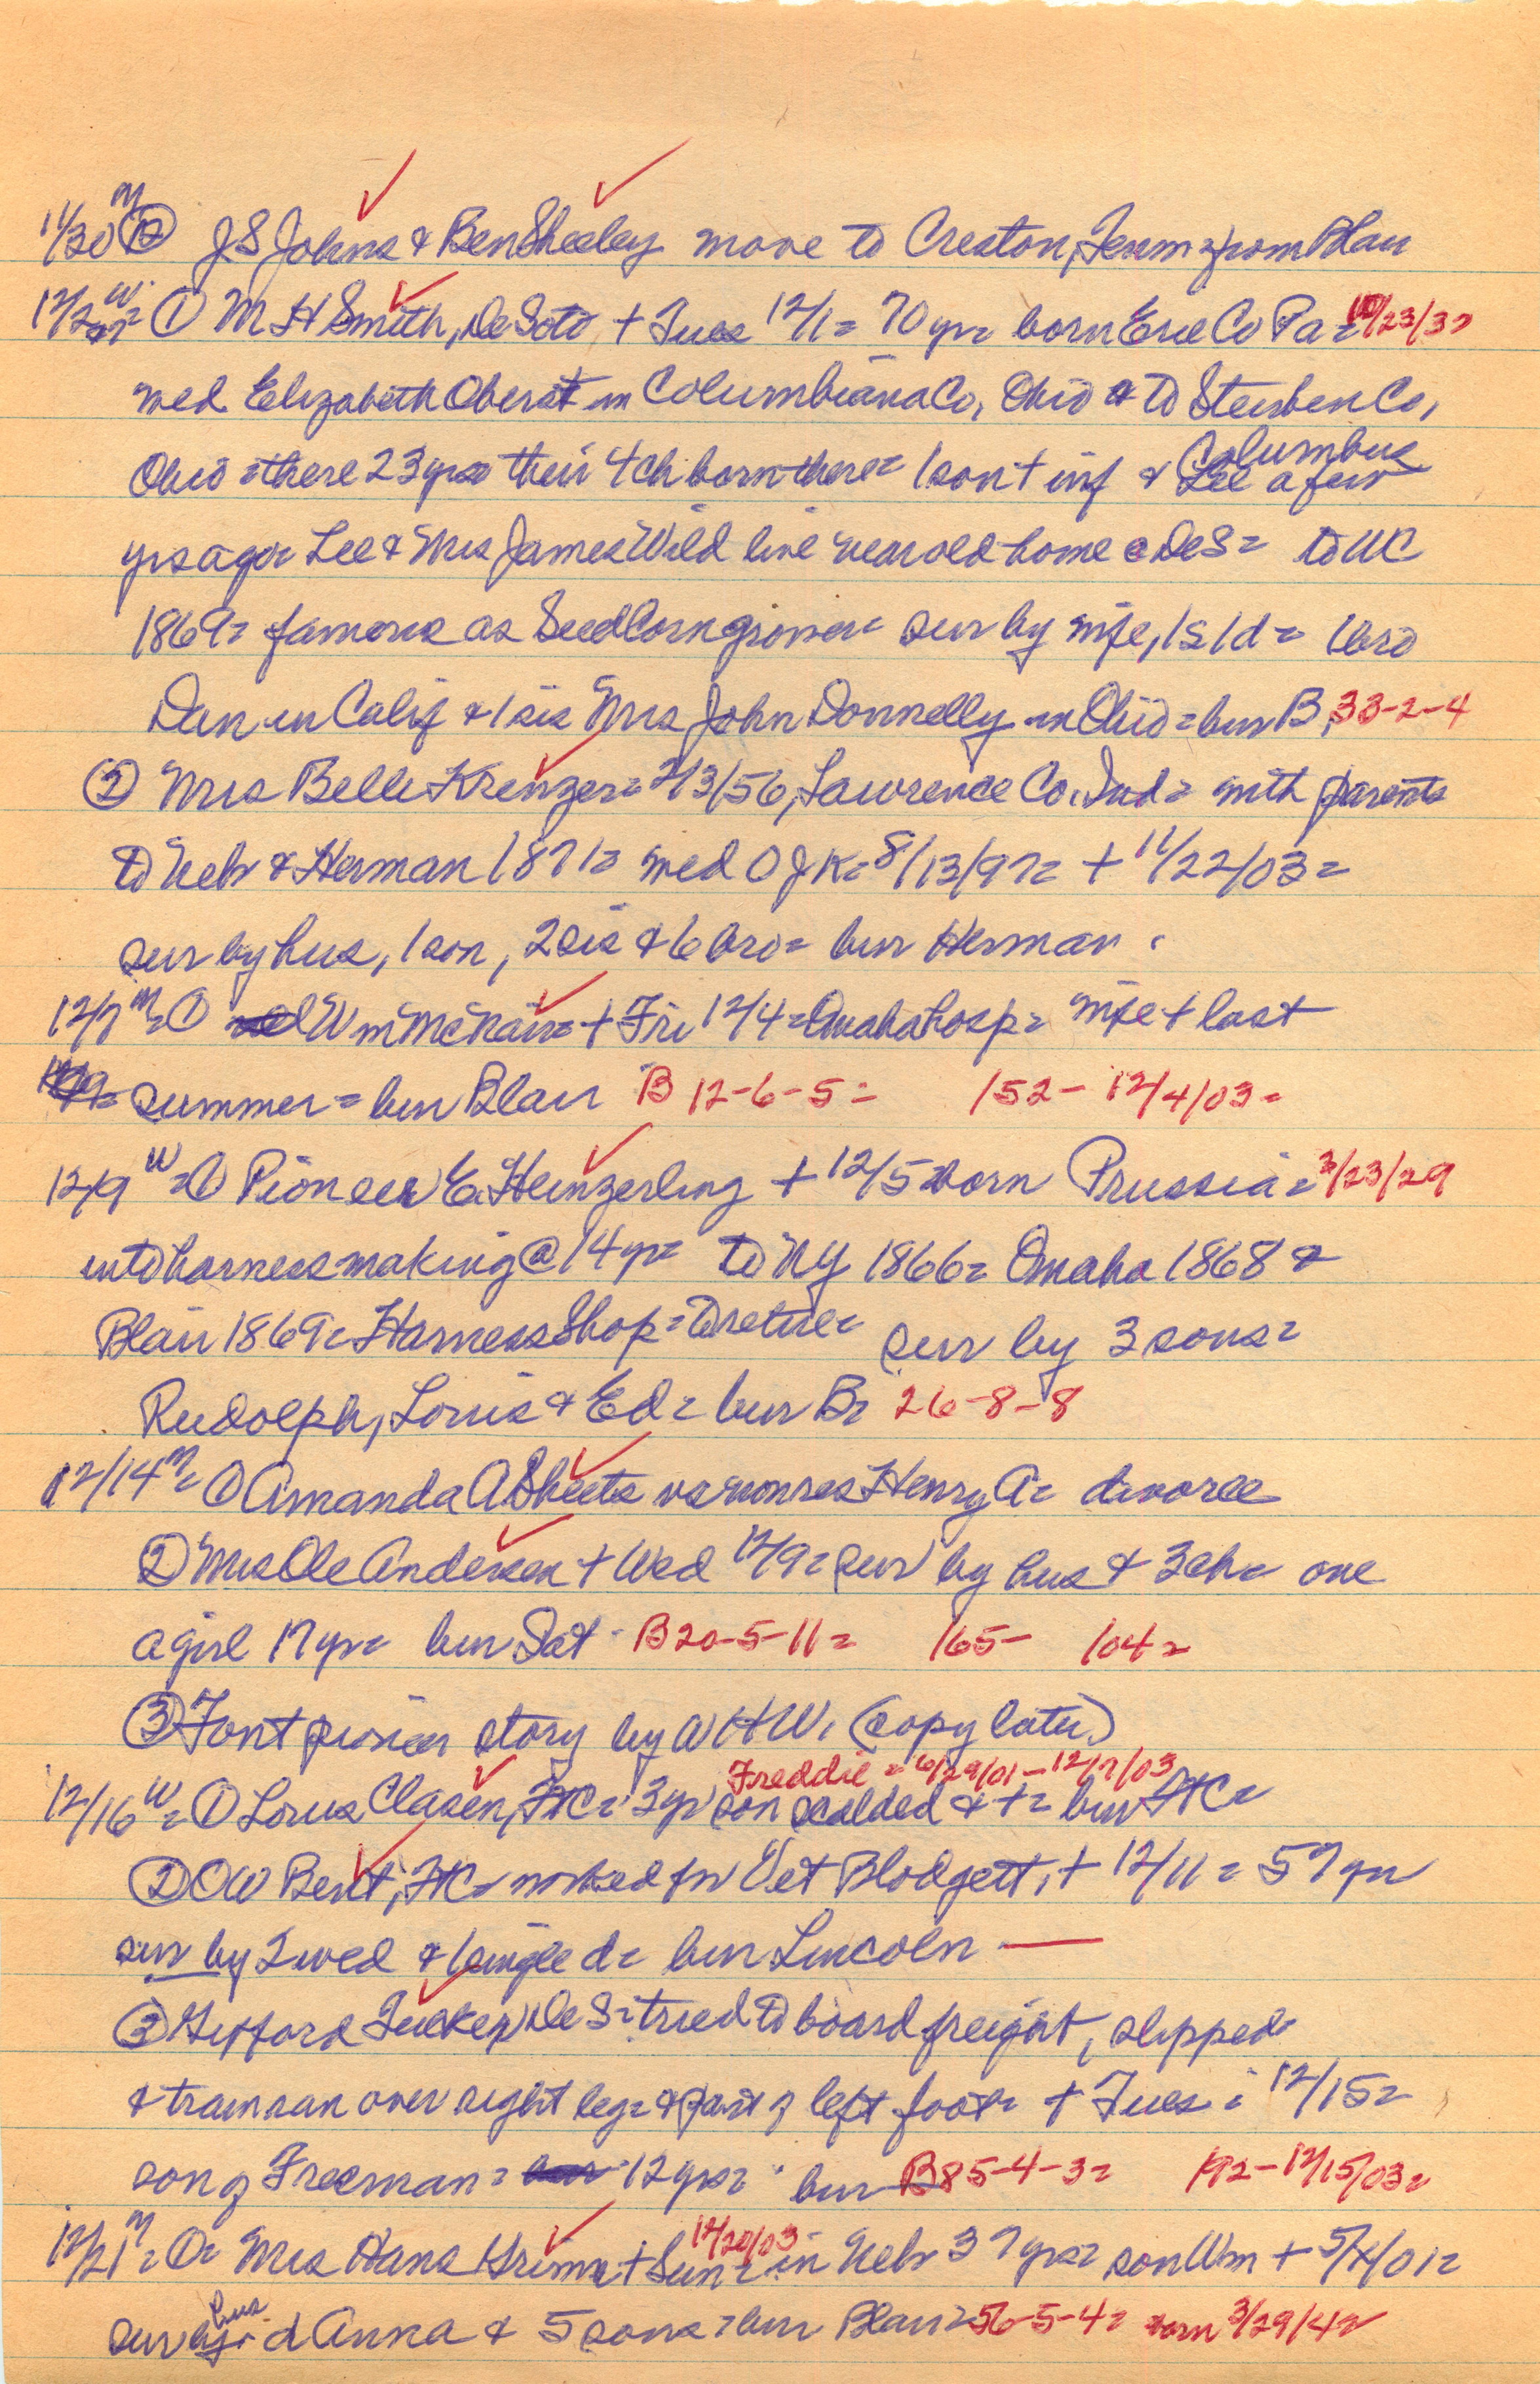 11/30 M (12) J S Johns & Ben Sheeley move to Creston, from Blair
12/2 W = (1) M H Smith, De Soto + Tues 12/1 = 70 yrs = born Erie Co Pa = 10/23/33
wed Elizabeth in Columbiana Co, Ohio & to Steuben Co,
Ohio = there 23 yrs = their 4 ch born there = 1 son + inf & Columbus a few
yrs ago = Lee & Mrs James Wild live near old home @ DeS = to WC
1869 = famous as Seed Corn grower = sur by wife, 1 s 1 d = 1 bro
Dan in Calif & 1 sis Mrs John Donnelly in Ohio = bur B, 33-2-4
(2) Mrs Belle Krenzer = 2/3/56, Lawrence Co. Ind = with parents
to Nebr & Herman 1871 = wed O J K = 8/13/97 = + 11/22/03 =
sur by hus, 1 son, 2 sis & 6 bro = bur Herman.
12/7 M = (1) Wm McNair = + Fri 12/4 = Omaha hosp = wife + last
summer = bur Blair B 12-6-5 = 152 - 12/4/03 =
12/9 W = (1) Pioneer E. Heinzerling + 12/5 = born Prussia = 3/23/29
into harness making @ 14 yr = to NY 1866 = Omaha 1868 &
Blair 1869 = Harness Shop = to retire = sur by 3 sons =
Rudolph, Louis & Ed = bur B = 26-8-8
12/14 M = (1) Amanda A Sheets vs nonres Henry A = divorce
(2) Mrs Ole Andersen + Wed 12/9 = sur by hus & 3 ch = one
a girl 17 yr = bur Sat - B 20-5-11 = 165 - 104 =
(3) Font pioneer story by W H W. (copy later)
Freddie = 6/29/01 - 12/7/03
12/16 W = (1) Louis Clasen, FtC = 3 yr son scalded & + = bur FtC =
(2) O W Bent, FtC = worked for Vet Blodgett, + 12/11 = 57 yr
sur by 2 wed & 1 single d = bur Lincoln —
(3) Gifford Tucker, DeS = tried to board freight, slipped
& train ran over right leg = & part of left foot = + Tues = 12/15 =
son of Freeman = 12 yrs = bur B 85-4-3 = 192 - 12/15/03 =
12/21 M = (1) = Mrs Hans Grimm + Sun = 12/20/03 - in Nebr 37 yrs = son Wm + 5/4/01 =
sur by hus - d Anna & 5 sons = bur Blair = 56-5-4 = born 3/29/42